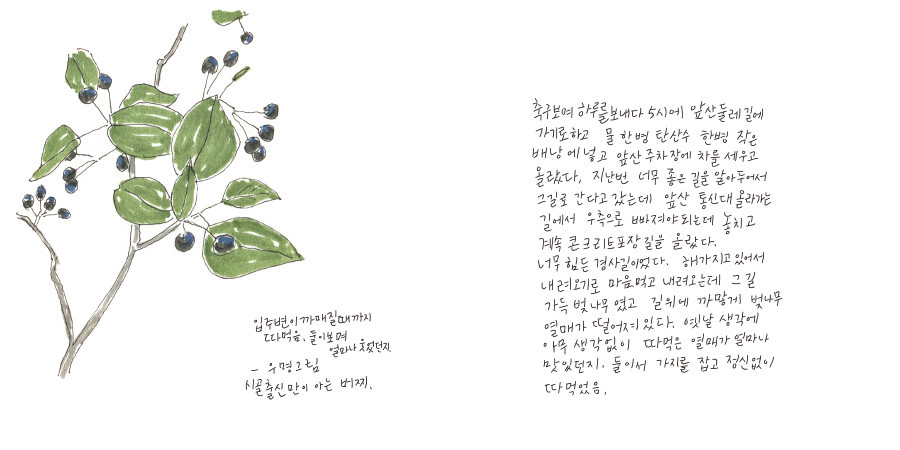 입주변이 까매질때까지
따먹음. 둘이보며
얼마나 웃었던지
- 우명그림
시골출신만이 아는 버찌.
축구보며 하루를 보내다 5시에 앞산둘레길에
가기로하고 물 한병 탄산수 한병 작은
배낭에 넣고 앞산주차장에 차를 세우고
올랐다. 지난번 너무 좋은 길을 알아두어서
그길로 간다고 갔는데 앞산 통신대 올라가는
길에서 우측으로 빠져야되는데 놓치고
계속 콘크리트포장길을 올랐다.
너무 힘든 경사길이었다. 해가지고 있어서
내려오기로 마음먹고 내려오는데 그 길
가득 벚나무였고 길위에 까맣게 벚나무
열매가 떨어져 있다. 옛날 생각에
아무 생각없이 따먹은 열매가 얼마나
맛있던지. 둘이서 가지를 잡고 정신없이
따먹었음.